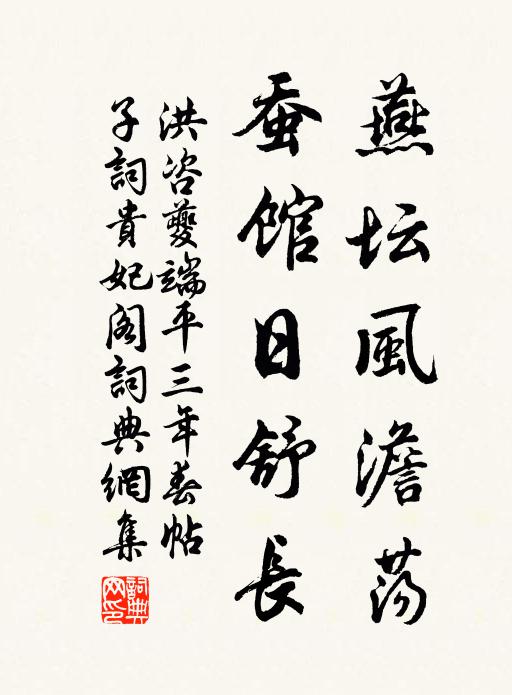 燕坛風澹荡
蚕馆日舒長
洪咨夔端平三年春帖
子詞貴妃阁詞典網集
詞典网印